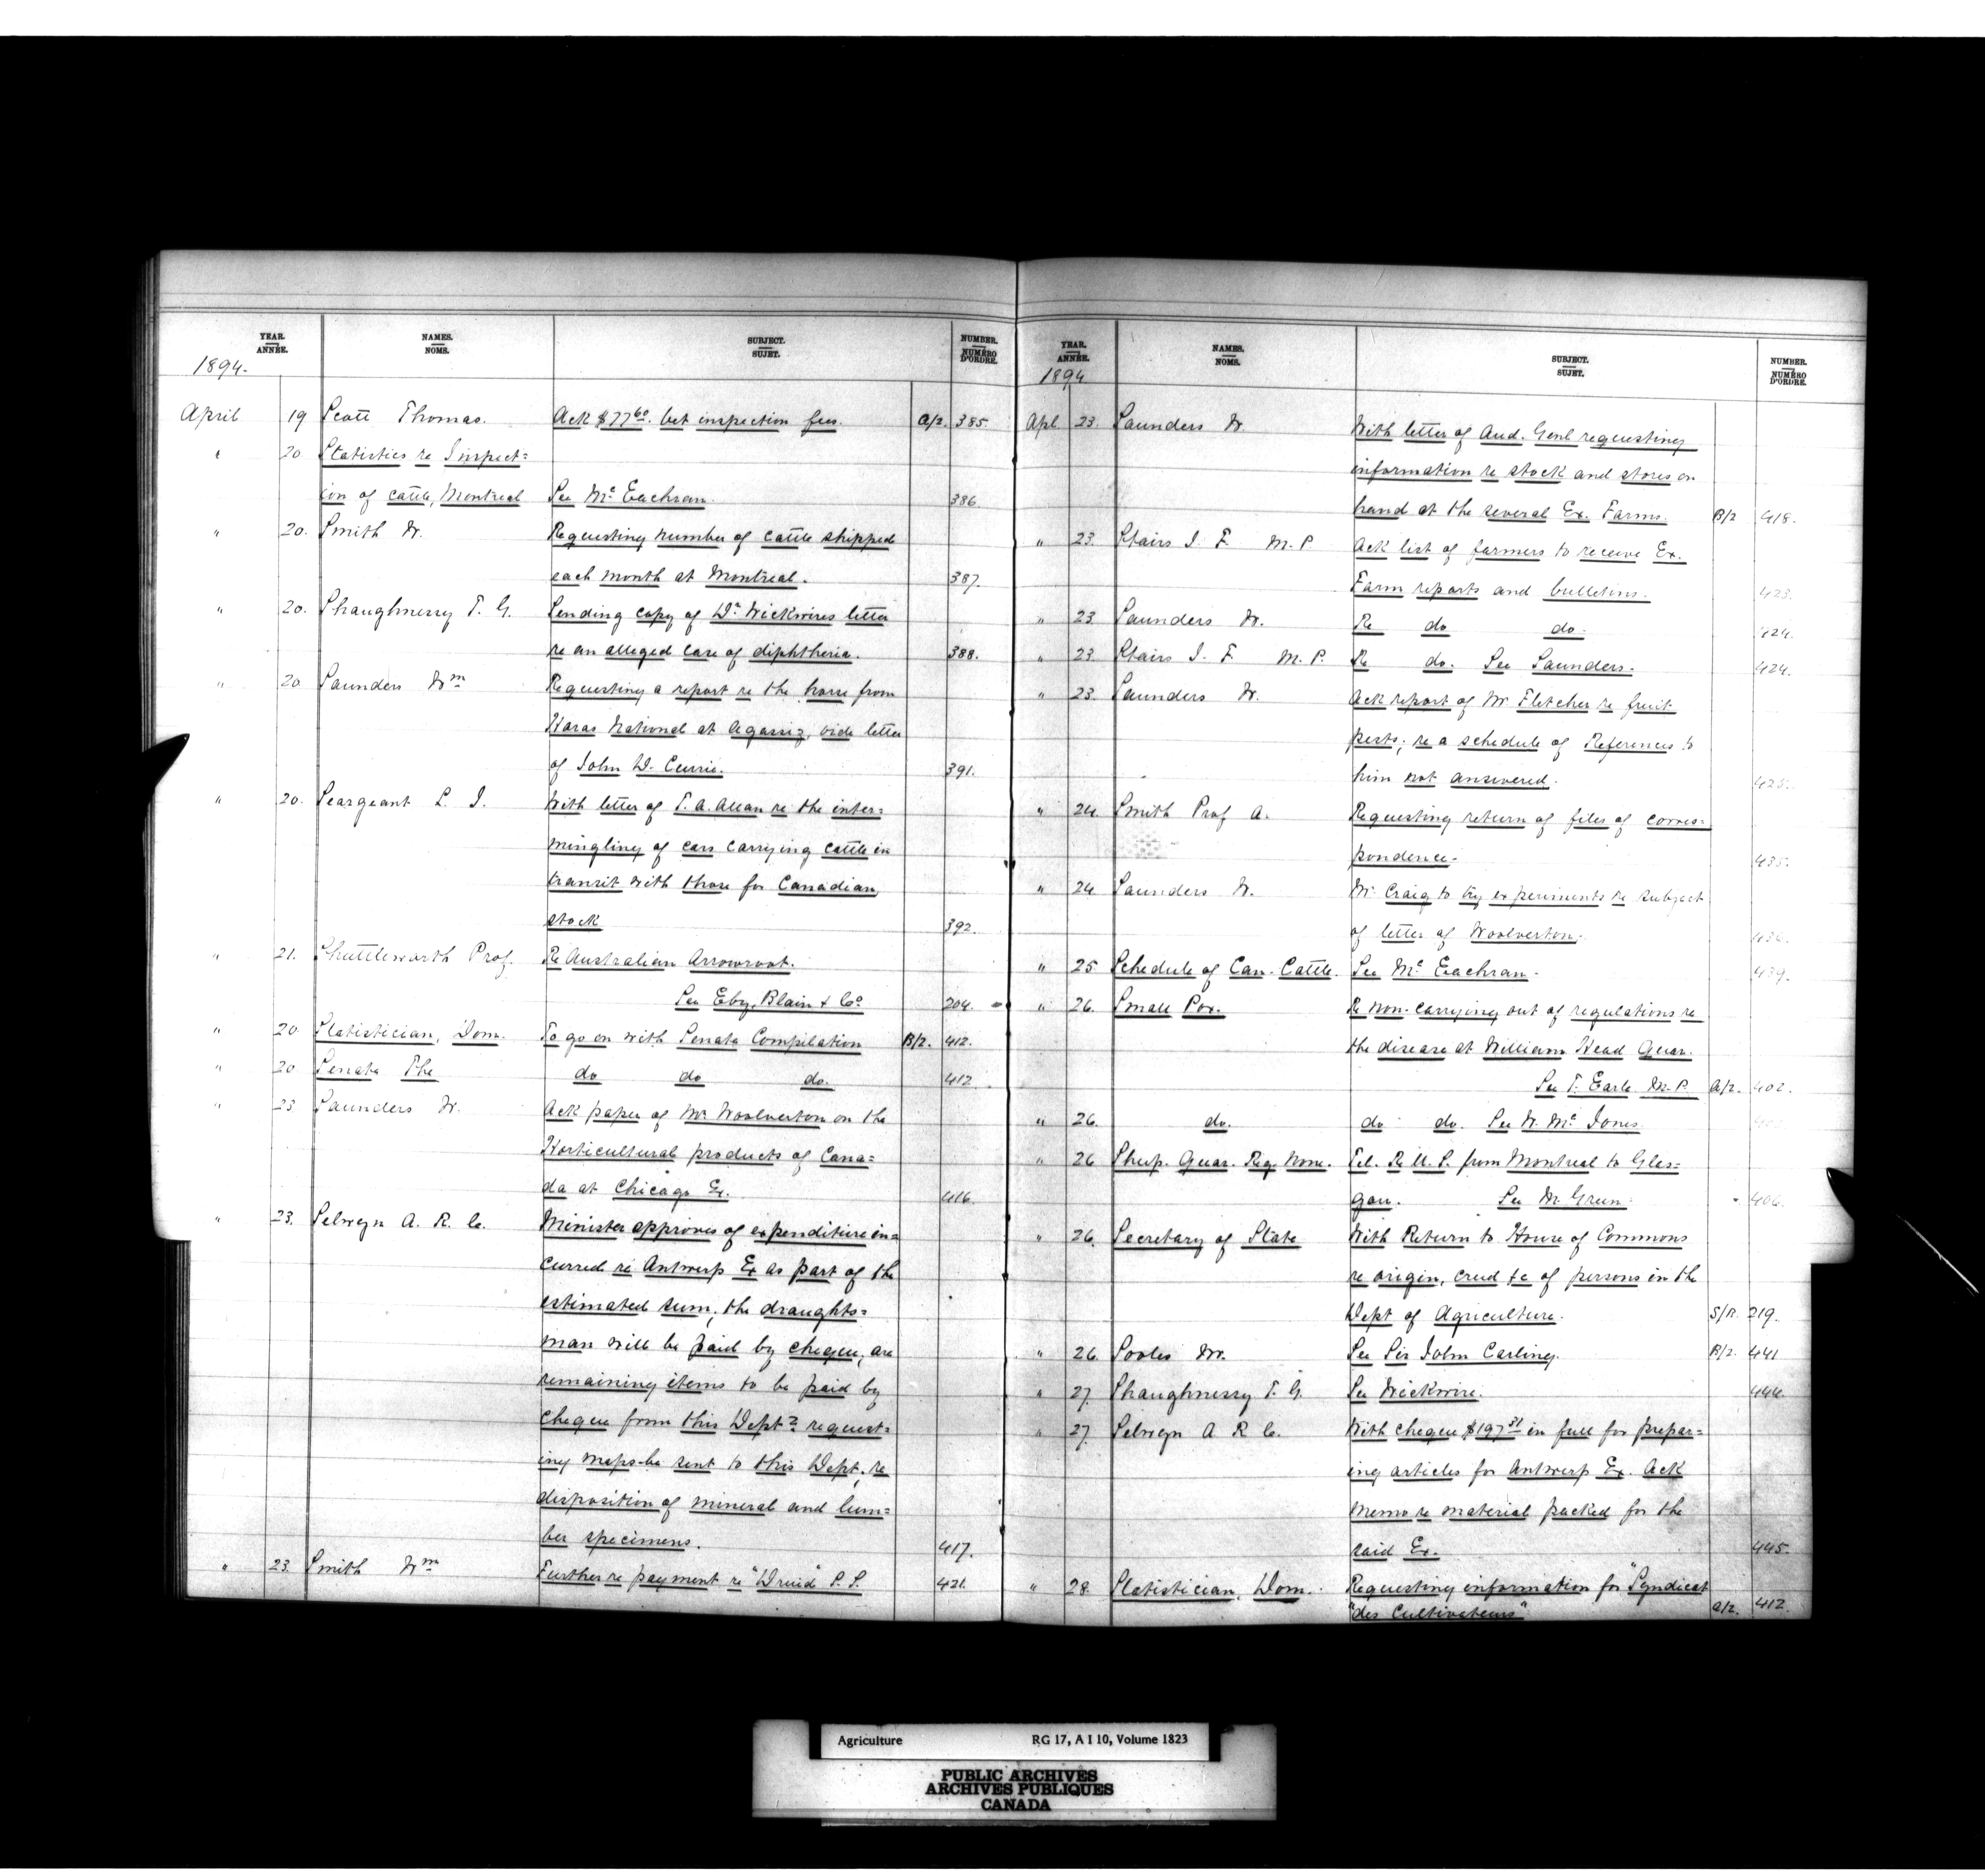 YEAR. NAMES. SUBJECT. NUMBER.
ANNÉE. NOMS. SUJET. NUMÉRO D'ORDRE.
1894.
April 19 Scott Thomas. Ack $77 60. bct inspection fees. A/2. 385
" 20 Statistics re Inspect=
ion of Cattle, Montreal See Mc Eachran. 386
" 20. Smith W. Requesting number of cattle shipped
each month at Montreal. 387.
" 20. Shaughnessy T. G. Sending copy of Dr Wickwires letter
re an alleged case of diphtheria. 388.
" 20 Saunders Wm Requesting a report re the horse from
Haras National at Agassiz, vide letter
of John D. Currie. 391.
" 20. Seargeant L. J. With letter of T. A. Allan re the inter=
mingling of cars carrying cattle in
transit with those for Canadian
stock 392.
" 21. Shuttleworth Prof. Re Australian Arrowroot.
See Eby, Blain & Co 204.
" 20. Statistician, Dom. To go on with Senate Compilation B/2. 412.
" 20 Senate The do do do. 412
" 23 Saunders W. Ack paper of Mr Woolverton on the
Horticultural products of Cana=
da at Chicago Ex. 416.
" 23. Selwyn A. R. C. Minister approves of expenditure in=
curred re Antwerp Ex as part of the
estimated sum, the draughts=
man will be paid by cheque, are
remaining items to be paid by
cheque from this Dept? request=
ing maps be sent to this Dept, re
disposition of mineral and lum=
ber specimens. 417.
" 23. Smith Wm Further re payment re "Druid" S. S. 421.
YEAR. NAMES. SUBJECT. NUMBER.
ANNÉE. NOMS. SUJET. NUMÉRO D'ORDRE.
1894
Apl 23. Saunders W. With letter of Aud. Genl requesting
information re stock and stores on
hand at the several Ex. Farms. B/2 418.
" 23. Stairs J. F. M. P. Ack list of farmers to receive Ex.
Farm reports and bulletins. 423.
" 23 Saunders W. Re do do. 424.
" 23. Stairs J. F. M. P. Re do. See Saunders. 424.
" 23. Saunders W. Ack report of Mr Fletcher re fruit
pests; re a schedule of References to
him not answered. 425.
" 24. Smith Prof A. Requesting return of files of corres=
pondence. 435.
" 24 Saunders W. Mr Craig to try experiments re subject
of letter of Woolverton. 436.
" 25 Schedule of Can. Cattle. See Mc Eachran. 439.
" 26. Small Pox. Re non-carrying out of regulations re
the disease at William Head Quar.
See T. Earle M. P. A/2. 402.
" 26. do. do do. See W. Mc Jones
" 26 Sheep. Quar. Reg. Nova. Tel. Re U. S. from Montreal to Glas=
gow. See M Green. 406.
" 26. Secretary of State With Return to House of Commons
re origin, creed &c of persons in the
Dept of Agriculture. S/R. 219.
" 26. Sooles Mr. See Sir John Carling. B/2. 441
" 27. Shaughnessy T. G. See Wickwire. 444.
" 27. Selwyn A R C. With cheque $197 31 in full for prepar=
ing articles for Antwerp Ex. Ack
memo re material packed for the
said Ex. 445.
" 28. Statistician, Dom. Requesting information for "Syndicat
"des Cultivateurs" A/2. 412.
Agriculture RG 17, A I 10, Volume 1823
PUBLIC ARCHIVES
ARCHIVES PUBLIQUES
CANADA